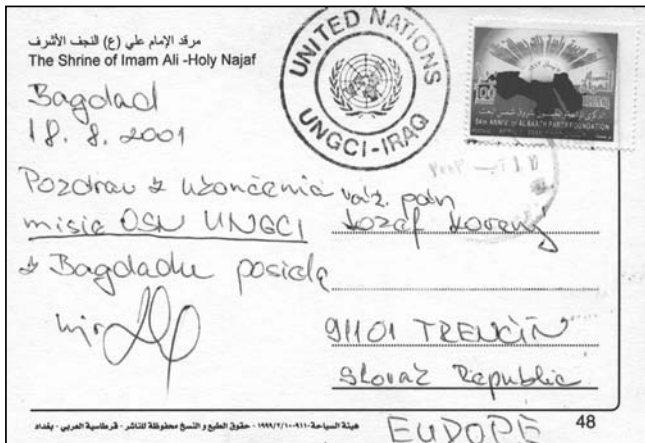 مرقد الإمام علي (ع) النجف الأشرف
The Shrine of Imam Ali -Holy Najaf
UNITED NATIONS
UNGCI-IRAQ
IRAQ
54TH ANNIV. OF ALBAATH PARTY FOUNDATION
Bagdad
18. 8. 2001
Pozdrav z ukončenia
misie OSN UNGCI
z Bagdadu posiela
mjr
váž. pán
Jozef Korený
91101 TRENČÍN
Slovak Republic
EUROPE
هيئة السياحة-٩١١-١٩٩٩/٢/١٠ - حقوق الطبع و النسخ محفوظة للناشر - قرطاسية العربي - بغداد
48